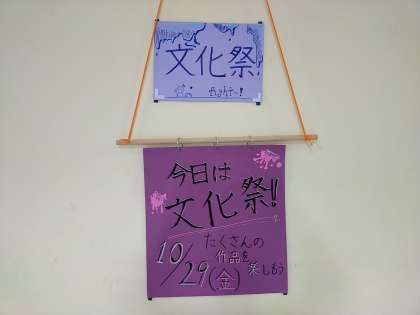 文化祭
今日は
文化祭!
10/29(金)
たくさんの
作品を
楽しもう